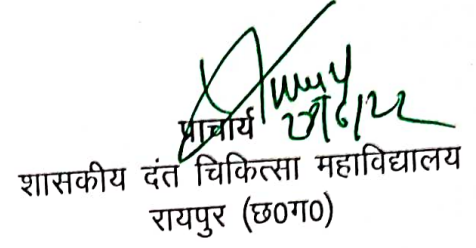 प्राचार्य
शासकीय दंत चिकित्सा महाविद्यालय
रायपुर (छ0ग0)